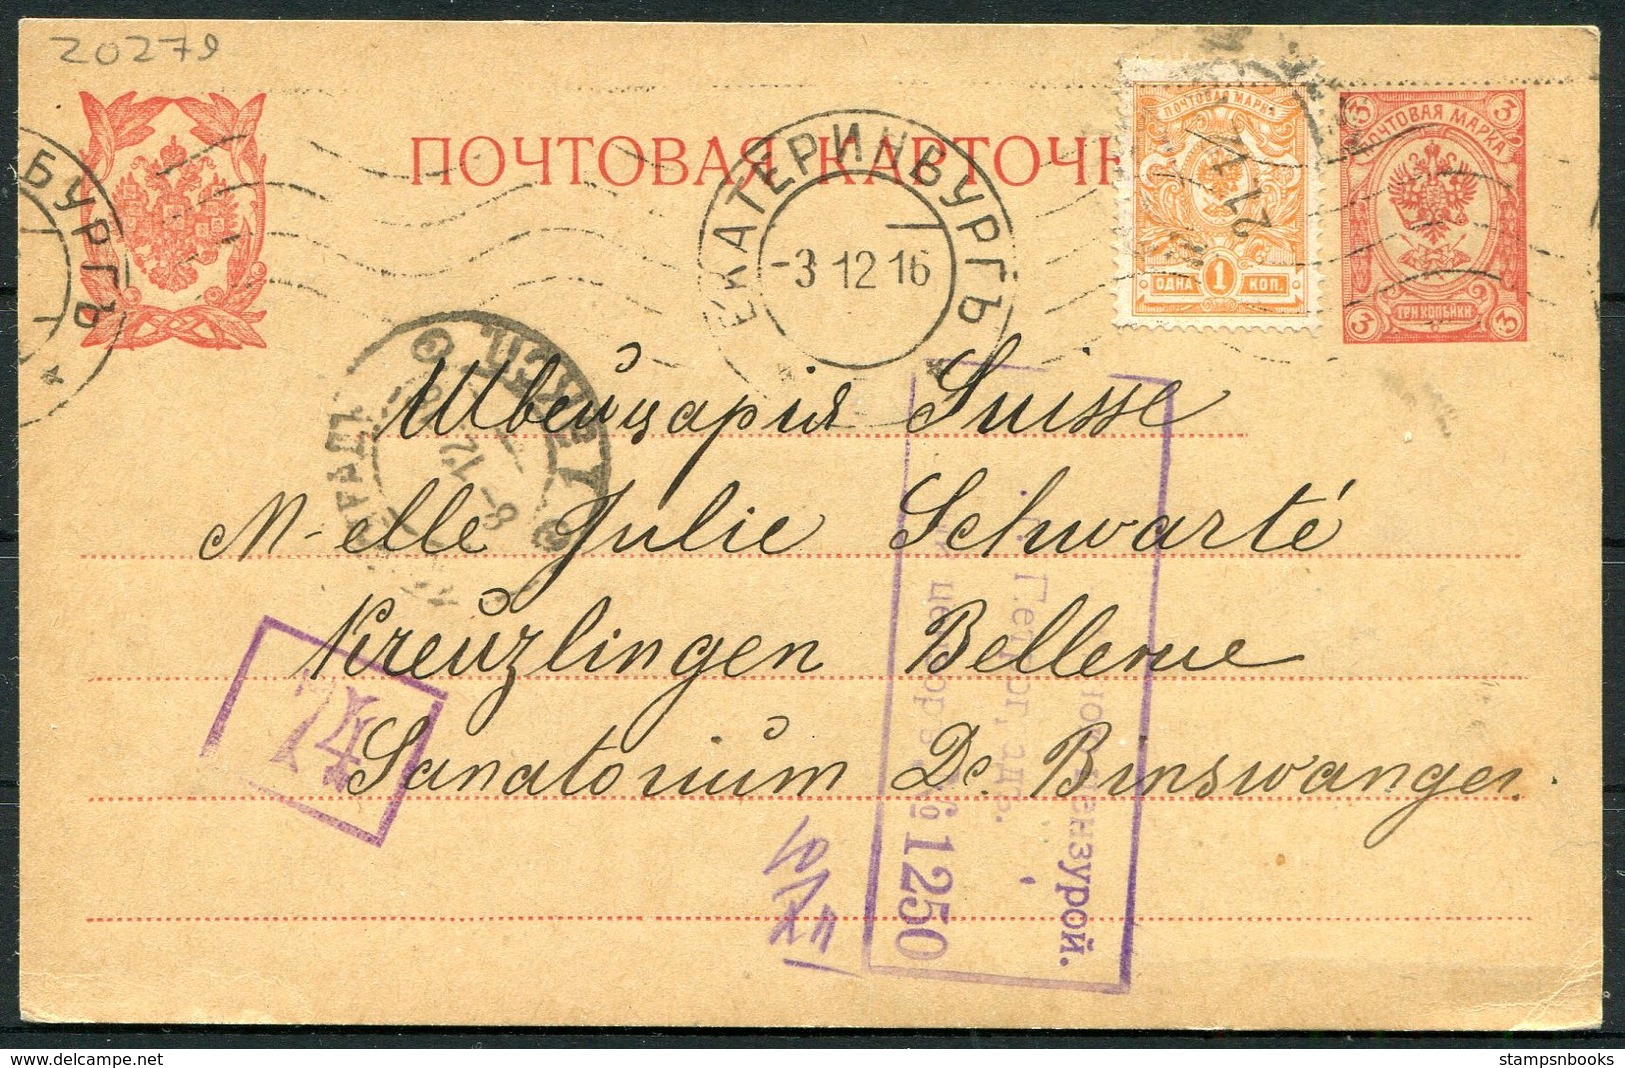 20279
ПОЧТОВАЯ КАРТОЧК
ПОЧТОВАЯ МАРКА
ОДНА 1 КОП.
3 ПОЧТОВАЯ МАРКА 3
3 ТРИ КОПѢЙКИ 3
БУРГЪ
ЕКАТЕРИНБУРГЪ
-3 12 16
Швейцарія Suisse
M-elle Julie Schwarté
Kreuzlingen Bellevue
Sanatorium Dr. Binswanger.
8-12
74
цензурой.
№ 1250
stampsnbooks